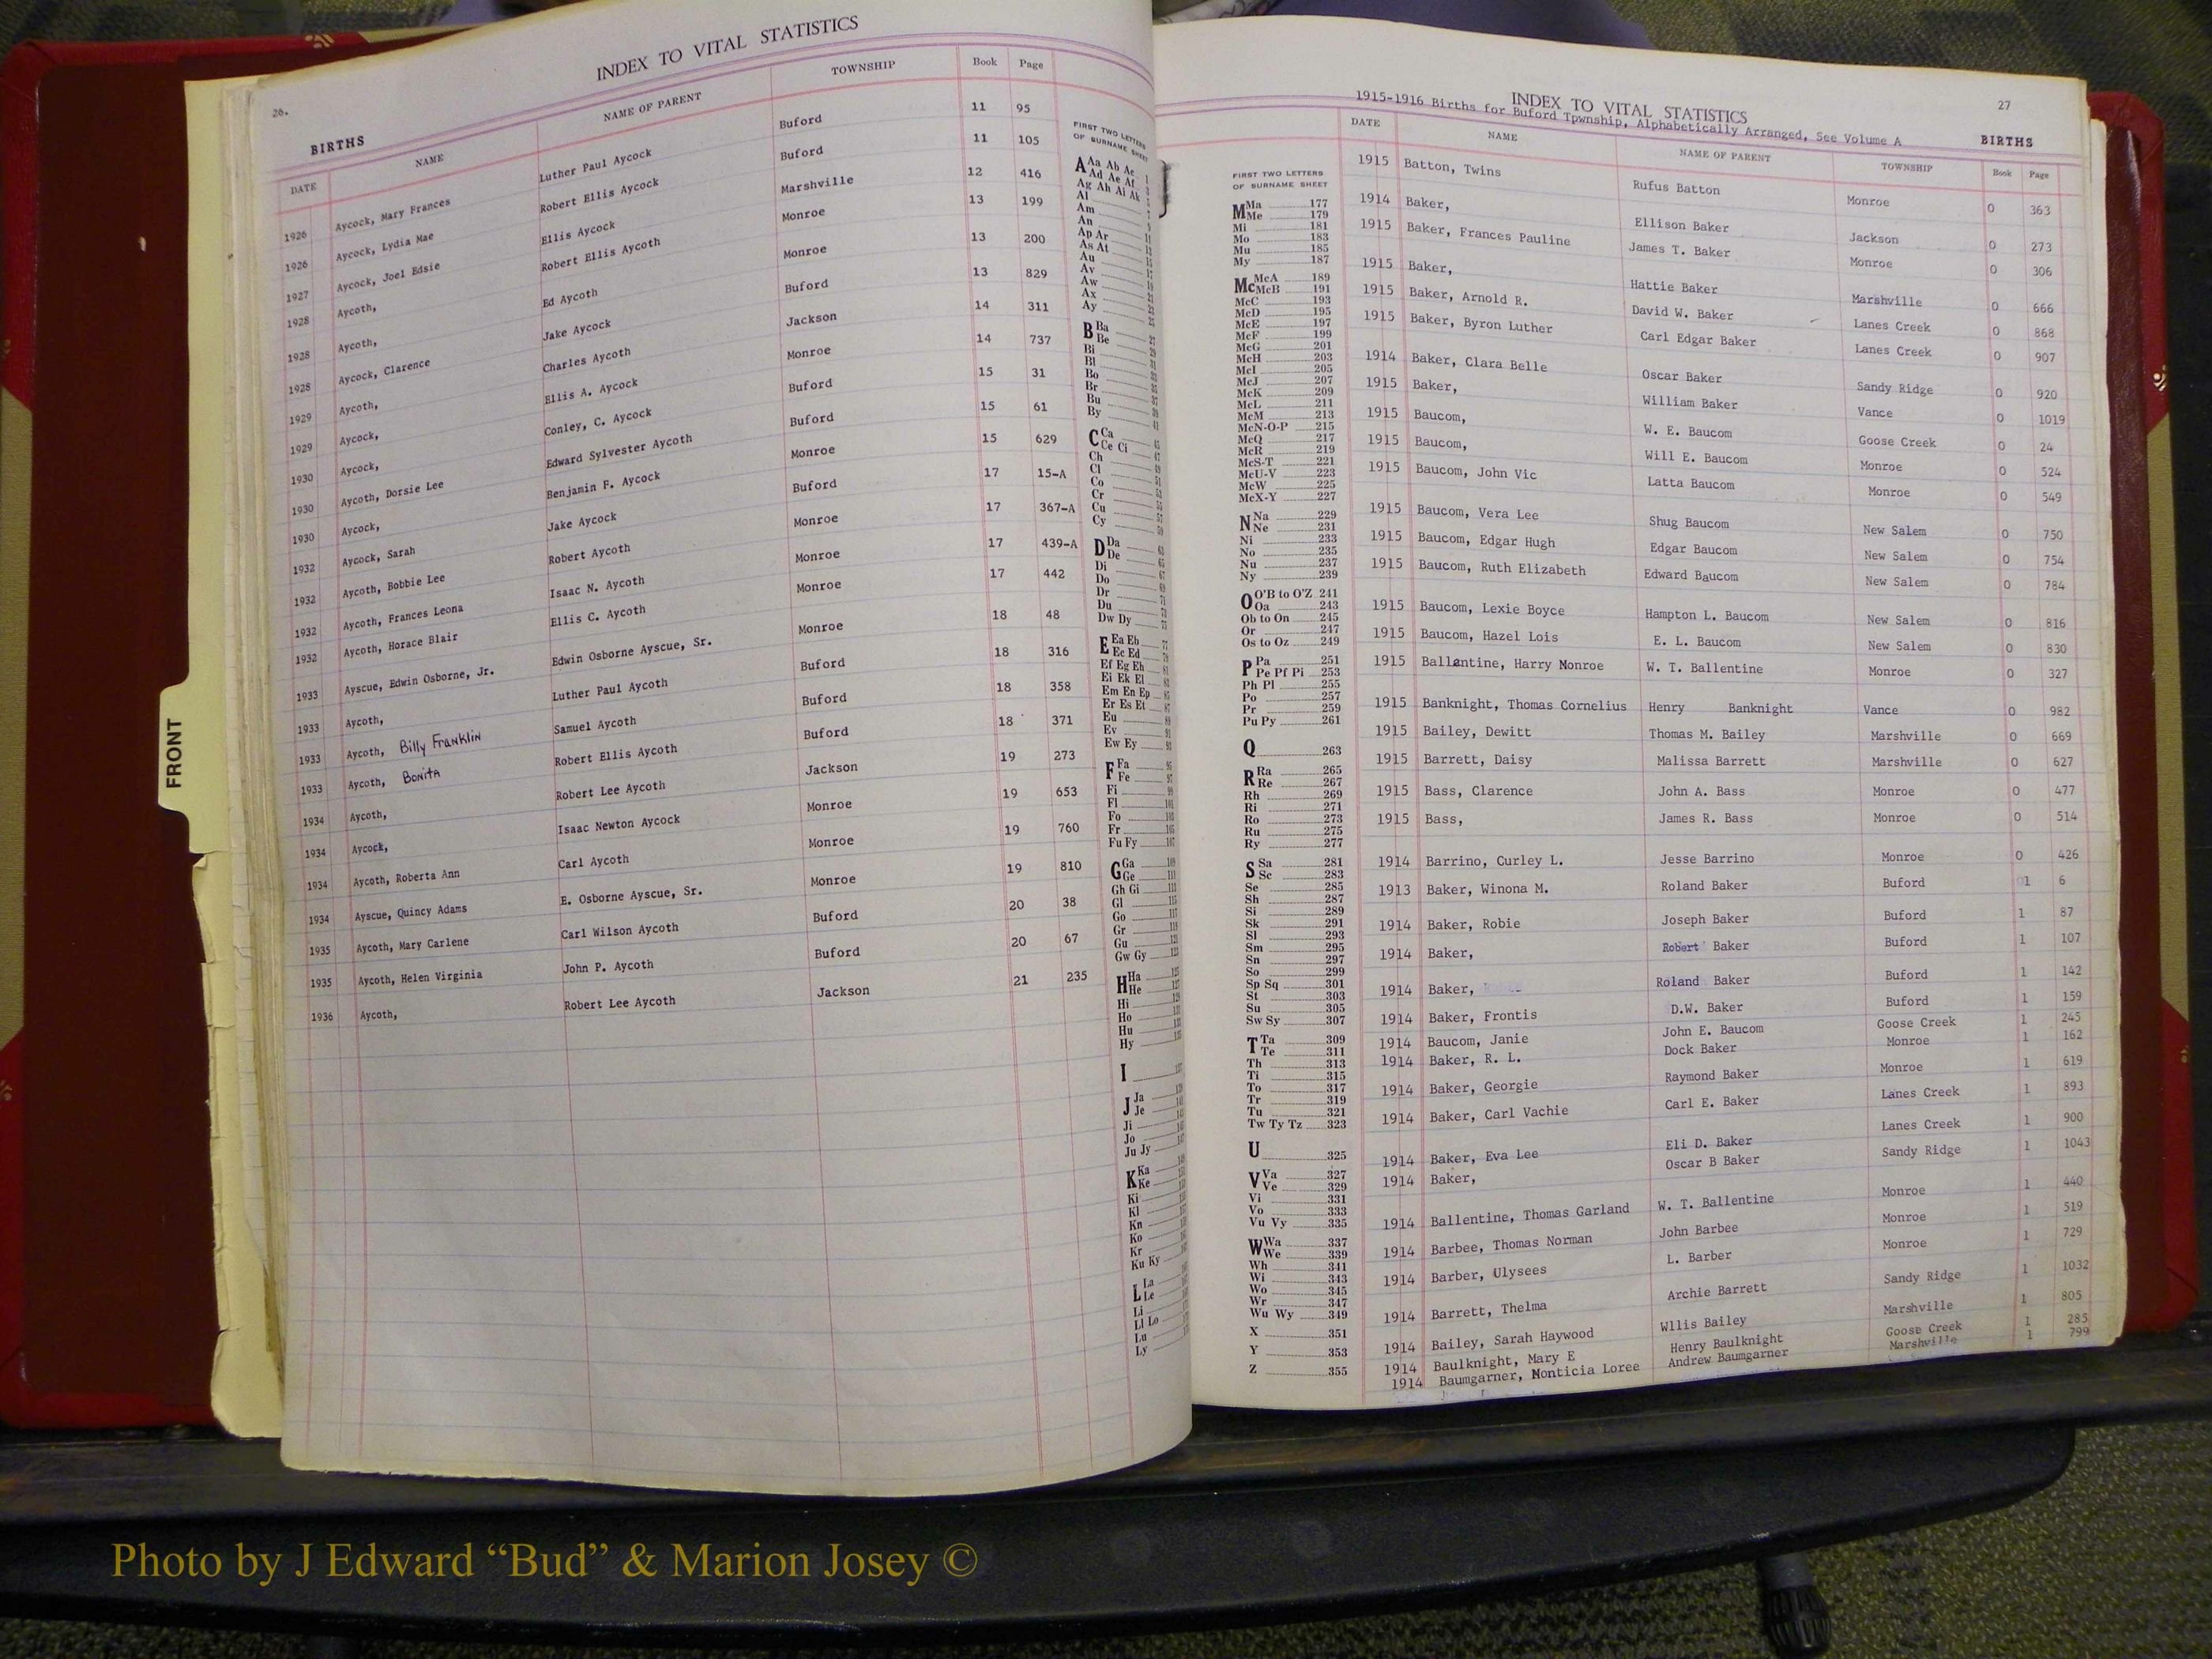 26.
INDEX TO VITAL STATISTICS
BIRTHS
DATE NAME NAME OF PARENT TOWNSHIP Book Page
1926 Aycock, Mary Frances Luther Paul Aycock Buford 11 95
1926 Aycock, Lydia Mae Robert Ellis Aycock Buford 11 105
1927 Aycock, Joel Edsie Ellis Aycock Marshville 12 416
1928 Aycoth, Robert Ellis Aycoth Monroe 13 199
1928 Aycoth, Ed Aycoth Monroe 13 200
1928 Aycock, Clarence Jake Aycock Buford 13 829
1929 Aycoth, Charles Aycoth Jackson 14 311
1929 Aycock, Ellis A. Aycock Monroe 14 737
1930 Aycock, Conley, C. Aycock Buford 15 31
1930 Aycoth, Dorsie Lee Edward Sylvester Aycoth Buford 15 61
1930 Aycock, Benjamin F. Aycock Monroe 15 629
1932 Aycock, Sarah Jake Aycock Buford 17 15-A
1932 Aycoth, Bobbie Lee Robert Aycoth Monroe 17 367-A
1932 Aycoth, Frances Leona Isaac N. Aycoth Monroe 17 439-A
1932 Aycoth, Horace Blair Ellis C. Aycoth Monroe 17 442
1933 Ayscue, Edwin Osborne, Jr. Edwin Osborne Ayscue, Sr. Monroe 18 48
1933 Aycoth, Luther Paul Aycoth Buford 18 316
1933 Aycoth, Billy Franklin Samuel Aycoth Buford 18 358
1933 Aycoth, Bonita Robert Ellis Aycoth Buford 18 371
1934 Aycoth, Robert Lee Aycoth Jackson 19 273
1934 Aycock, Isaac Newton Aycock Monroe 19 653
1934 Aycoth, Roberta Ann Carl Aycoth Monroe 19 760
1934 Ayscue, Quincy Adams E. Osborne Ayscue, Sr. Monroe 19 810
1935 Aycoth, Mary Carlene Carl Wilson Aycoth Buford 20 38
1935 Aycoth, Helen Virginia John P. Aycoth Buford 20 67
1936 Aycoth, Robert Lee Aycoth Jackson 21 235
FIRST TWO LETTERS
OF SURNAME SHEET
A Aa Ab Ac
Ad Ae Af
Ag Ah Ai Ak
Al
Am
An
Ap Ar
As At
Au
Av
Aw
Ax
Ay
B Ba
Be
Bi
Bl
Bo
Br
Bu
By
C Ca
Ce Ci
Ch
Cl
Co
Cr
Cu
Cy
D Da
De
Di
Do
Dr
Du
Dw Dy
E Ea Eb
Ec Ed
Ef Eg Eh
Ei Ek El
Em En Ep
Er Es Et
Eu
Ev
Ew Ey
F Fa
Fe
Fi
Fl
Fo
Fr
Fu Fy
G Ga
Ge
Gh Gi
Gl
Go
Gr
Gu
Gw Gy
H Ha
He
Hi
Ho
Hu
Hy
I
J Ja
Je
Ji
Jo
Ju Jy
K Ka
Ke
Ki
Kl
Kn
Ko
Kr
Ku Ky
L La
Le
Li
Ll Lo
Lu
Ly
FRONT
INDEX TO VITAL STATISTICS
27
1915-1916 Births for Buford Tpwnship, Alphabetically Arranged, See Volume A
BIRTHS
FIRST TWO LETTERS
OF SURNAME SHEET
M Ma 177
Me 179
Mi 181
Mo 183
Mu 185
My 187
Mc McA 189
McB 191
McC 193
McD 195
McE 197
McF 199
McG 201
McH 203
McI 205
McJ 207
McK 209
McL 211
McM 213
McN-O-P 215
McQ 217
McR 219
McS-T 221
McU-V 223
McW 225
McX-Y 227
N Na 229
Ne 231
Ni 233
No 235
Nu 237
Ny 239
O O'B to O'Z 241
Oa 243
Ob to On 245
Or 247
Os to Oz 249
P Pa 251
Pe Pf Pi 253
Ph Pl 255
Po 257
Pr 259
Pu Py 261
Q 263
R Ra 265
Re 267
Rh 269
Ri 271
Ro 273
Ru 275
Ry 277
S Sa 281
Sc 283
Se 285
Sh 287
Si 289
Sk 291
Sl 293
Sm 295
Sn 297
So 299
Sp Sq 301
St 303
Su 305
Sw Sy 307
T Ta 309
Te 311
Th 313
Ti 315
To 317
Tr 319
Tu 321
Tw Ty Tz 323
U 325
V Va 327
Ve 329
Vi 331
Vo 333
Vu Vy 335
W Wa 337
We 339
Wh 341
Wi 343
Wo 345
Wr 347
Wu Wy 349
X 351
Y 353
Z 355
DATE NAME NAME OF PARENT TOWNSHIP Book Page
1915 Batton, Twins Rufus Batton Monroe 0 363
1914 Baker, Ellison Baker Jackson 0 273
1915 Baker, Frances Pauline James T. Baker Monroe 0 306
1915 Baker, Hattie Baker Marshville 0 666
1915 Baker, Arnold R. David W. Baker Lanes Creek 0 868
1915 Baker, Byron Luther Carl Edgar Baker Lanes Creek 0 907
1914 Baker, Clara Belle Oscar Baker Sandy Ridge 0 920
1915 Baker, William Baker Vance 0 1019
1915 Baucom, W. E. Baucom Goose Creek 0 24
1915 Baucom, Will E. Baucom Monroe 0 524
1915 Baucom, John Vic Latta Baucom Monroe 0 549
1915 Baucom, Vera Lee Shug Baucom New Salem 0 750
1915 Baucom, Edgar Hugh Edgar Baucom New Salem 0 754
1915 Baucom, Ruth Elizabeth Edward Baucom New Salem 0 784
1915 Baucom, Lexie Boyce Hampton L. Baucom New Salem 0 816
1915 Baucom, Hazel Lois E. L. Baucom New Salem 0 830
1915 Ballentine, Harry Monroe W. T. Ballentine Monroe 0 327
1915 Banknight, Thomas Cornelius Henry Banknight Vance 0 982
1915 Bailey, Dewitt Thomas M. Bailey Marshville 0 669
1915 Barrett, Daisy Malissa Barrett Marshville 0 627
1915 Bass, Clarence John A. Bass Monroe 0 477
1915 Bass, James R. Bass Monroe 0 514
1914 Barrino, Curley L. Jesse Barrino Monroe 0 426
1913 Baker, Winona M. Roland Baker Buford 1 6
1914 Baker, Robie Joseph Baker Buford 1 87
1914 Baker, Robert Baker Buford 1 107
1914 Baker, Roland Baker Buford 1 142
1914 Baker, Frontis D.W. Baker Buford 1 159
1914 Baucom, Janie John E. Baucom Goose Creek 1 245
1914 Baker, R. L. Dock Baker Monroe 1 162
1914 Baker, Georgie Raymond Baker Monroe 1 619
1914 Baker, Carl Vachie Carl E. Baker Lanes Creek 1 893
1914 Baker, Eva Lee Eli D. Baker Lanes Creek 1 900
1914 Baker, Oscar B Baker Sandy Ridge 1 1043
1914 Ballentine, Thomas Garland W. T. Ballentine Monroe 1 440
1914 Barbee, Thomas Norman John Barbee Monroe 1 519
1914 Barber, Ulysees L. Barber Monroe 1 729
1914 Barrett, Thelma Archie Barrett Sandy Ridge 1 1032
1914 Bailey, Sarah Haywood Wllis Bailey Marshville 1 805
1914 Baulknight, Mary E Henry Baulknight Goose Creek 1 285
1914 Baumgarner, Monticia Loree Andrew Baumgarner Marshville 1 799
Photo by J Edward “Bud” & Marion Josey ©